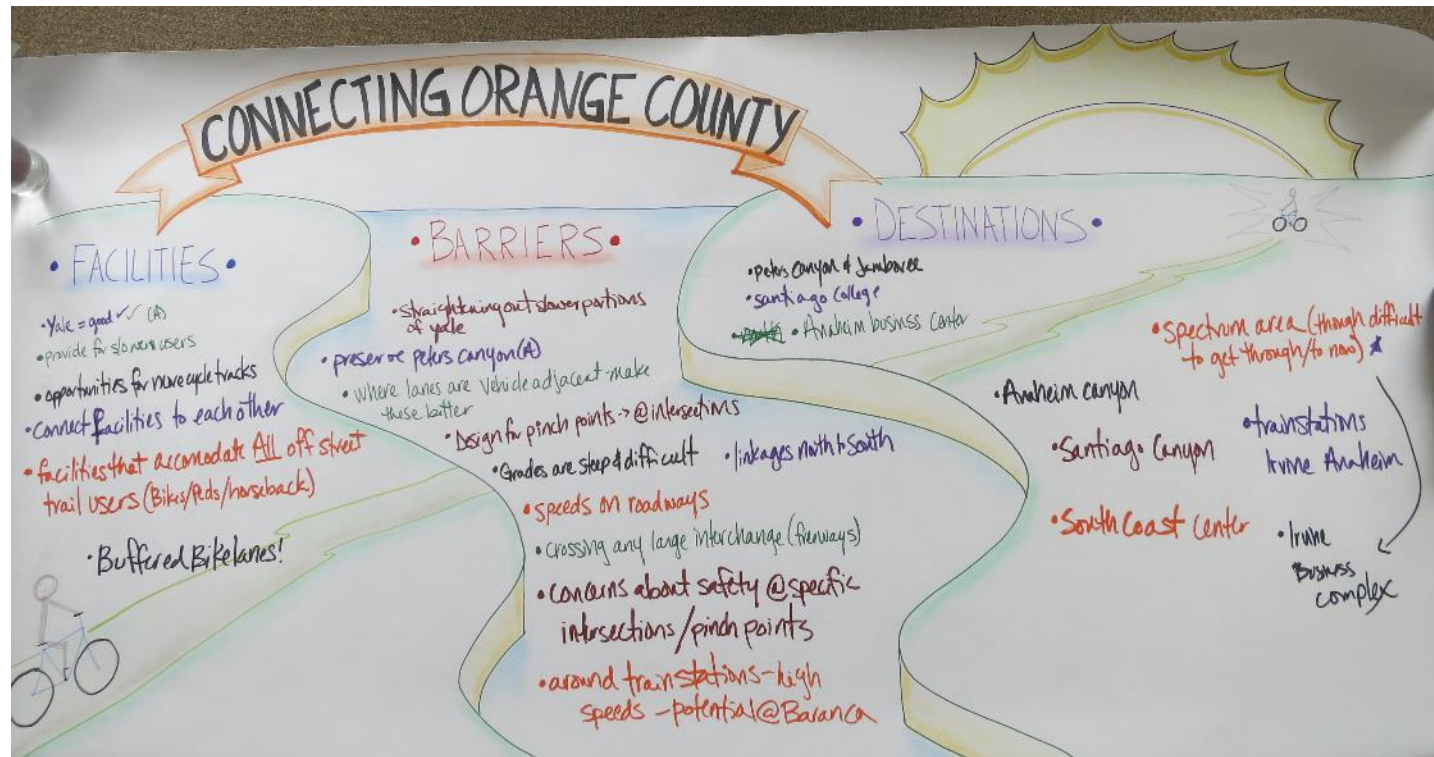 CONNECTING ORANGE COUNTY
• FACILITIES •
• Yale = good ✓✓ (A)
• provide for slower users
• opportunities for more cycle tracks
• connect facilities to each other
• facilities that accomodate ALL off street
trail users (Bikes/Peds/horseback)
• Buffered Bikelanes!
• BARRIERS •
• straightening out slower portions
of yale
• preserve peters canyon (A)
• where lanes are vehicle adjacent - make
these better
• Design for pinch points -> @ intersections
• Grades are steep & difficult
• linkages north to South
• speeds on roadways
• crossing any large interchange (freeways)
• concerns about safety @ specific
intersections/pinch points
• around train stations - high
speeds - potential @ Baranca
• DESTINATIONS •
• peters canyon & Jamboree
• santiago college
• Anaheim business center
• spectrum area (though difficult
to get through/to now) ★
• Anaheim canyon
• trainstations
Irvine Anaheim
• Santiago Canyon
• South Coast Center
• Irvine
Business
complex